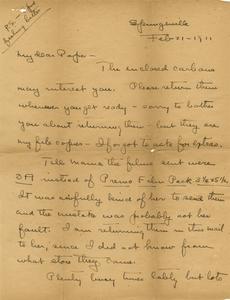 Springerville
Feb-21-1911
P.S. -
My dear Papa -
The enclosed carbons
may interest you. Please return them
whenever you get ready - sorry to bother
you about returning them - but they are
my file copies - I forgot to ask for extras.
Tell Mama the films sent were
3A instead of Premo Film Pack 3¼x5½.
It was awfully kind of her to send them
and the mistake was probably not her
fault. I am returning them in this mail
to her, since I did not know from
what store they came.
Plenty busy times lately but lots